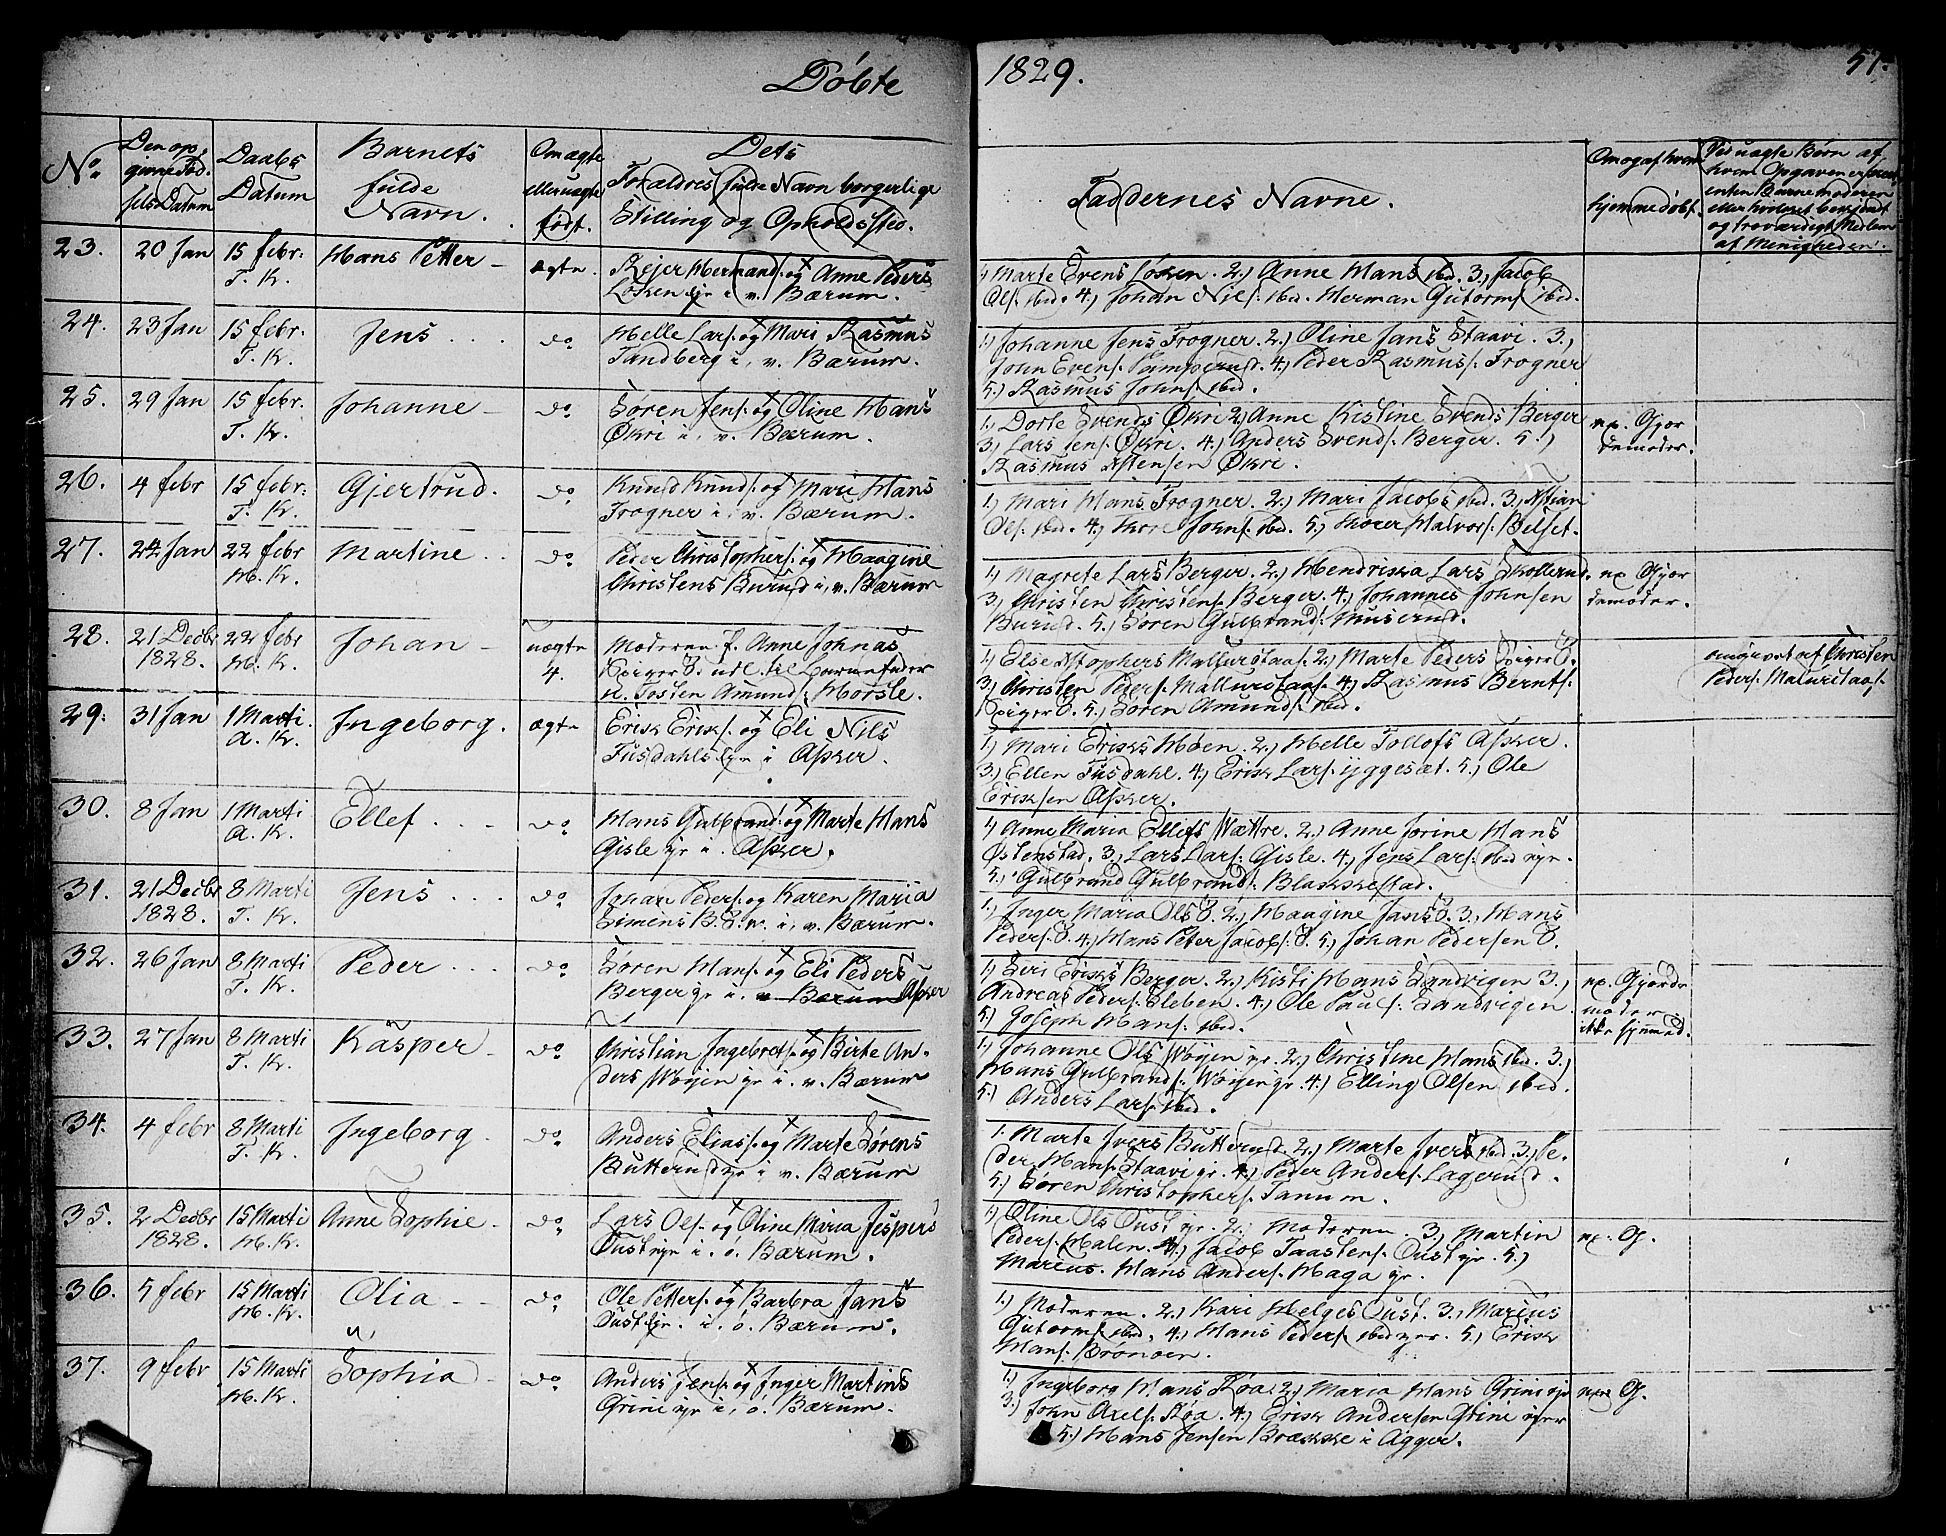 Döbte
1829.
51.
No.
Den op-
givne Fød-
sels Datum
Daabs
Datum
Barnets
fulde
Navn.
Om ægte
eller uægte
født.
Dets
Forældres fulde Navn borgerlige
Stilling og Opholdssted.
Faddernes Navne.
Om og af hvem
hjemmedøbt.
Ved uægte Børn af
hvem Opgaven er skeet
enten Barnemoderen
eller hvilket bekjendt
og troværdigt Medlem
af Menigheden.
23.
20 Jan
15 febr:
T. K.
Hans Petter
ægte.
Rejer Hermands: og Anne Peders
Løken gr i v. Bærum.
1) Marte Evens Løken. 2.) Anne Hans ibd. 3, Jacob
Ols: ibd. 4,) Johan Nils: ibd. Herman Gutorms ibid.
24.
23 Jan
15 febr.
T. K.
Jens
do
Helle Lars: og Mari Rasmus
Tandberg i, v. Bærum.
1.) Johanne Jens Frogner. 2.) Oline Jans Staavi. 3.,
John Evens: 4.) Peder Rasmus: Frogner
5.) Rasmus Johns ibd.
25.
29 Jan
15 febr.
T. K.
Johanne
do
Søren Jens: og Oline Hans
Økri i, v. Bærum.
1.) Dorte Svends Økri 2.) Anne Kistine Svends Berger
3.) Lars Jens: Økri. 4.) Anders Svends: Berger. 5.,
Rasmus Økri.
ex. Gjor
demoder.
26.
4 febr
15 febr:
T. K.
Gjertrud.
do
Knud Knuds: og Mari Hans
Frogner i, v. Bærum.
1.) Mari Hans Frogner. 2.) Mari Jacobs ibd. 3,
Ols: ibd. 4.) Thore Johns: ibd. 5.) Thorer Halvors: Belset.
27.
24 Jan
22 febr
H. K.
Martine
do
Peder Christophers: og Haagine
Christens Burud i, v. Bærum
1,) Magrete Lars Berger. 2.) Hendrikka Lars Skollerud.
3, Christen Christens: Berger. 4.) Johannes Johnsen
Burud. 5.) Søren Gulbrands: Muserud.
ex Gjor
demoder.
28.
21 Decbr
1828.
22 febr
H. K.
Johan
uægte
4.
Moderen p. Anne Johnas
udl. til Barnefader
Tosten Amund: Horsle.
1,) Else Stophers Mallurstaa. 2.) Marte Peders
3.) Christen Peders: Mallurstaa. 4.) Rasmus Bernts:
5.) Søren Amunds ibd.
angivet af Christen
Peders. Malurstaa.
29.
31 Jan
1 Marti.
A. K.
Ingeborg.
ægte
Erik Eriks: og Eli Nils
Fusdahl gr i Asker.
1,) Mari Eriks Høen. 2.) Helle Tollofs Asker.
3.) Ellen Fusdahl. 4.) Erik Lars: yggesæt. 5.) Ole
Eriksen Asker.
30.
8 Jan
1 Marti
A. K.
Ellef
do
Hans Gulbrand: og Marte Hans
Gisle gr i. Asker.
1,) Anne Maria Ellefs Wættre. 2.) Anne Jorine Hans
Østenstad. 3.) Lars Lars: Gisle. 4.) Jens Lars: ibid
5.) Gulbrand Gulbrands: Blakkestad.
31.
21 Decbr
1828.
8 Marti
T. K.
Jens
do
Johan Peders: og Karen Maria
Simens i, v. Bærum.
1.) Inger Maria Ols Ø. 2.) Haagine Jans Ø. 3.) Hans
Peders: Ø. 4.) Hans Peter Jacobs: Ø. 5.) Johan Pedersen Ø.
32.
26 Jan
8 Marti
T. K.
Peder
do
Søren Hans: og Eli Peders
Berger gr i. v Bærum Asker
1,) Siri Eriks Berger. 2.) Kisti Hans Sandvigen 3.,
Andreas Peders: Sleben. 4.) Ole Pauls: Sandvigen.
5.) Joseph Hans: ibd.
ex. Gjorde
moder
ikke hjemmed.
33.
27 Jan
8 Marti
T. K.
Kasper
do
Christian Ingebrets: og Birte An-
ders Wøyen gr i. v. Bærum
1,) Johanne Ols Wøyen gr. 2.) Christine Hans ibd. 3.)
Hans Gulbrands: Wøyen gr. 4.) Elling Olsen ibid.
5.) Anders Lars: ibd.
34.
4 febr
8 Marti
T. K.
Ingeborg.
do
Anders Elias: og Marte Sørens
Butterud gr i. v. Bærum
1. Marte Ivers Butterud 2.) Marte Ivers ibd. 3.) Pe-
der Hans: Staavi gr. 4.) Peder Anders: Lagerud.
5.) Søren Christophers: Tanum.
35.
2 Decbr
1828.
15 Marti
H. K.
Anne Sophie
do
Lars Ols: og Oline Maria Jespers
Oust gr i. ø. Bærum.
1.) Oline Ols Oust gr. 2.) Moderen 3.) Martin
Peders: Halen. 4.) Jacob Taastens: Oust gr. 5.)
Marcus. Hans Anders: Haga gr.
ex. G.
36.
5 febr
15 Marti
H. K.
Olia
do
Ole Petters: og Barbra Jans
Oust gr. i. ø. Bærum.
1.) Moderen. 2.) Kari Helges Oust. 3.) Marius
Gutorms: ibd. 4.) Hans Peders: ibd 5.) Erik
Hans: Brønøen.
37.
9 febr
15 Marti
H. K.
Sophia
do
Anders Jens: og Inger Martins
Grini gr i, ø. Bærum.
1.) Ingeborg Hans Røa. 2.) Maria Hans Grini
3.) John Axels: Røa. 4.) Erik Andersen Grini
5.) Hans Jensen Brække i Agger.
ex G.